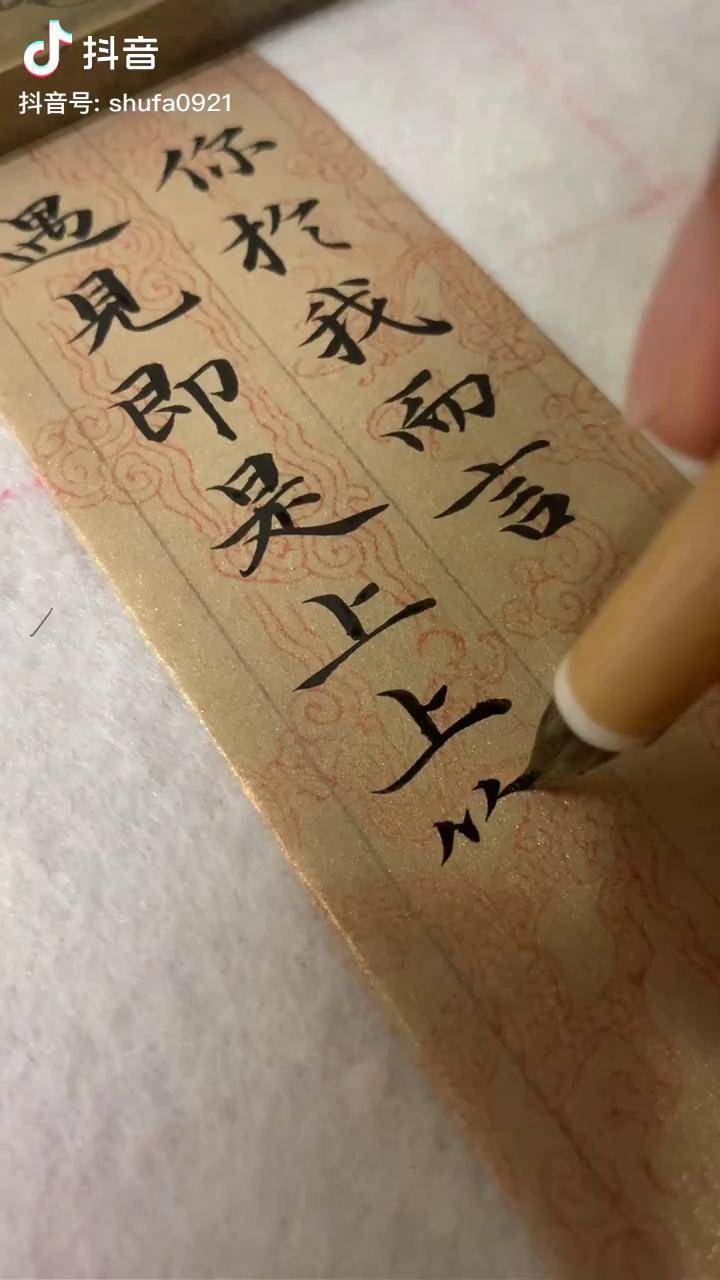 抖音
抖音号: shufa0921
你於我而言
遇見即是上上